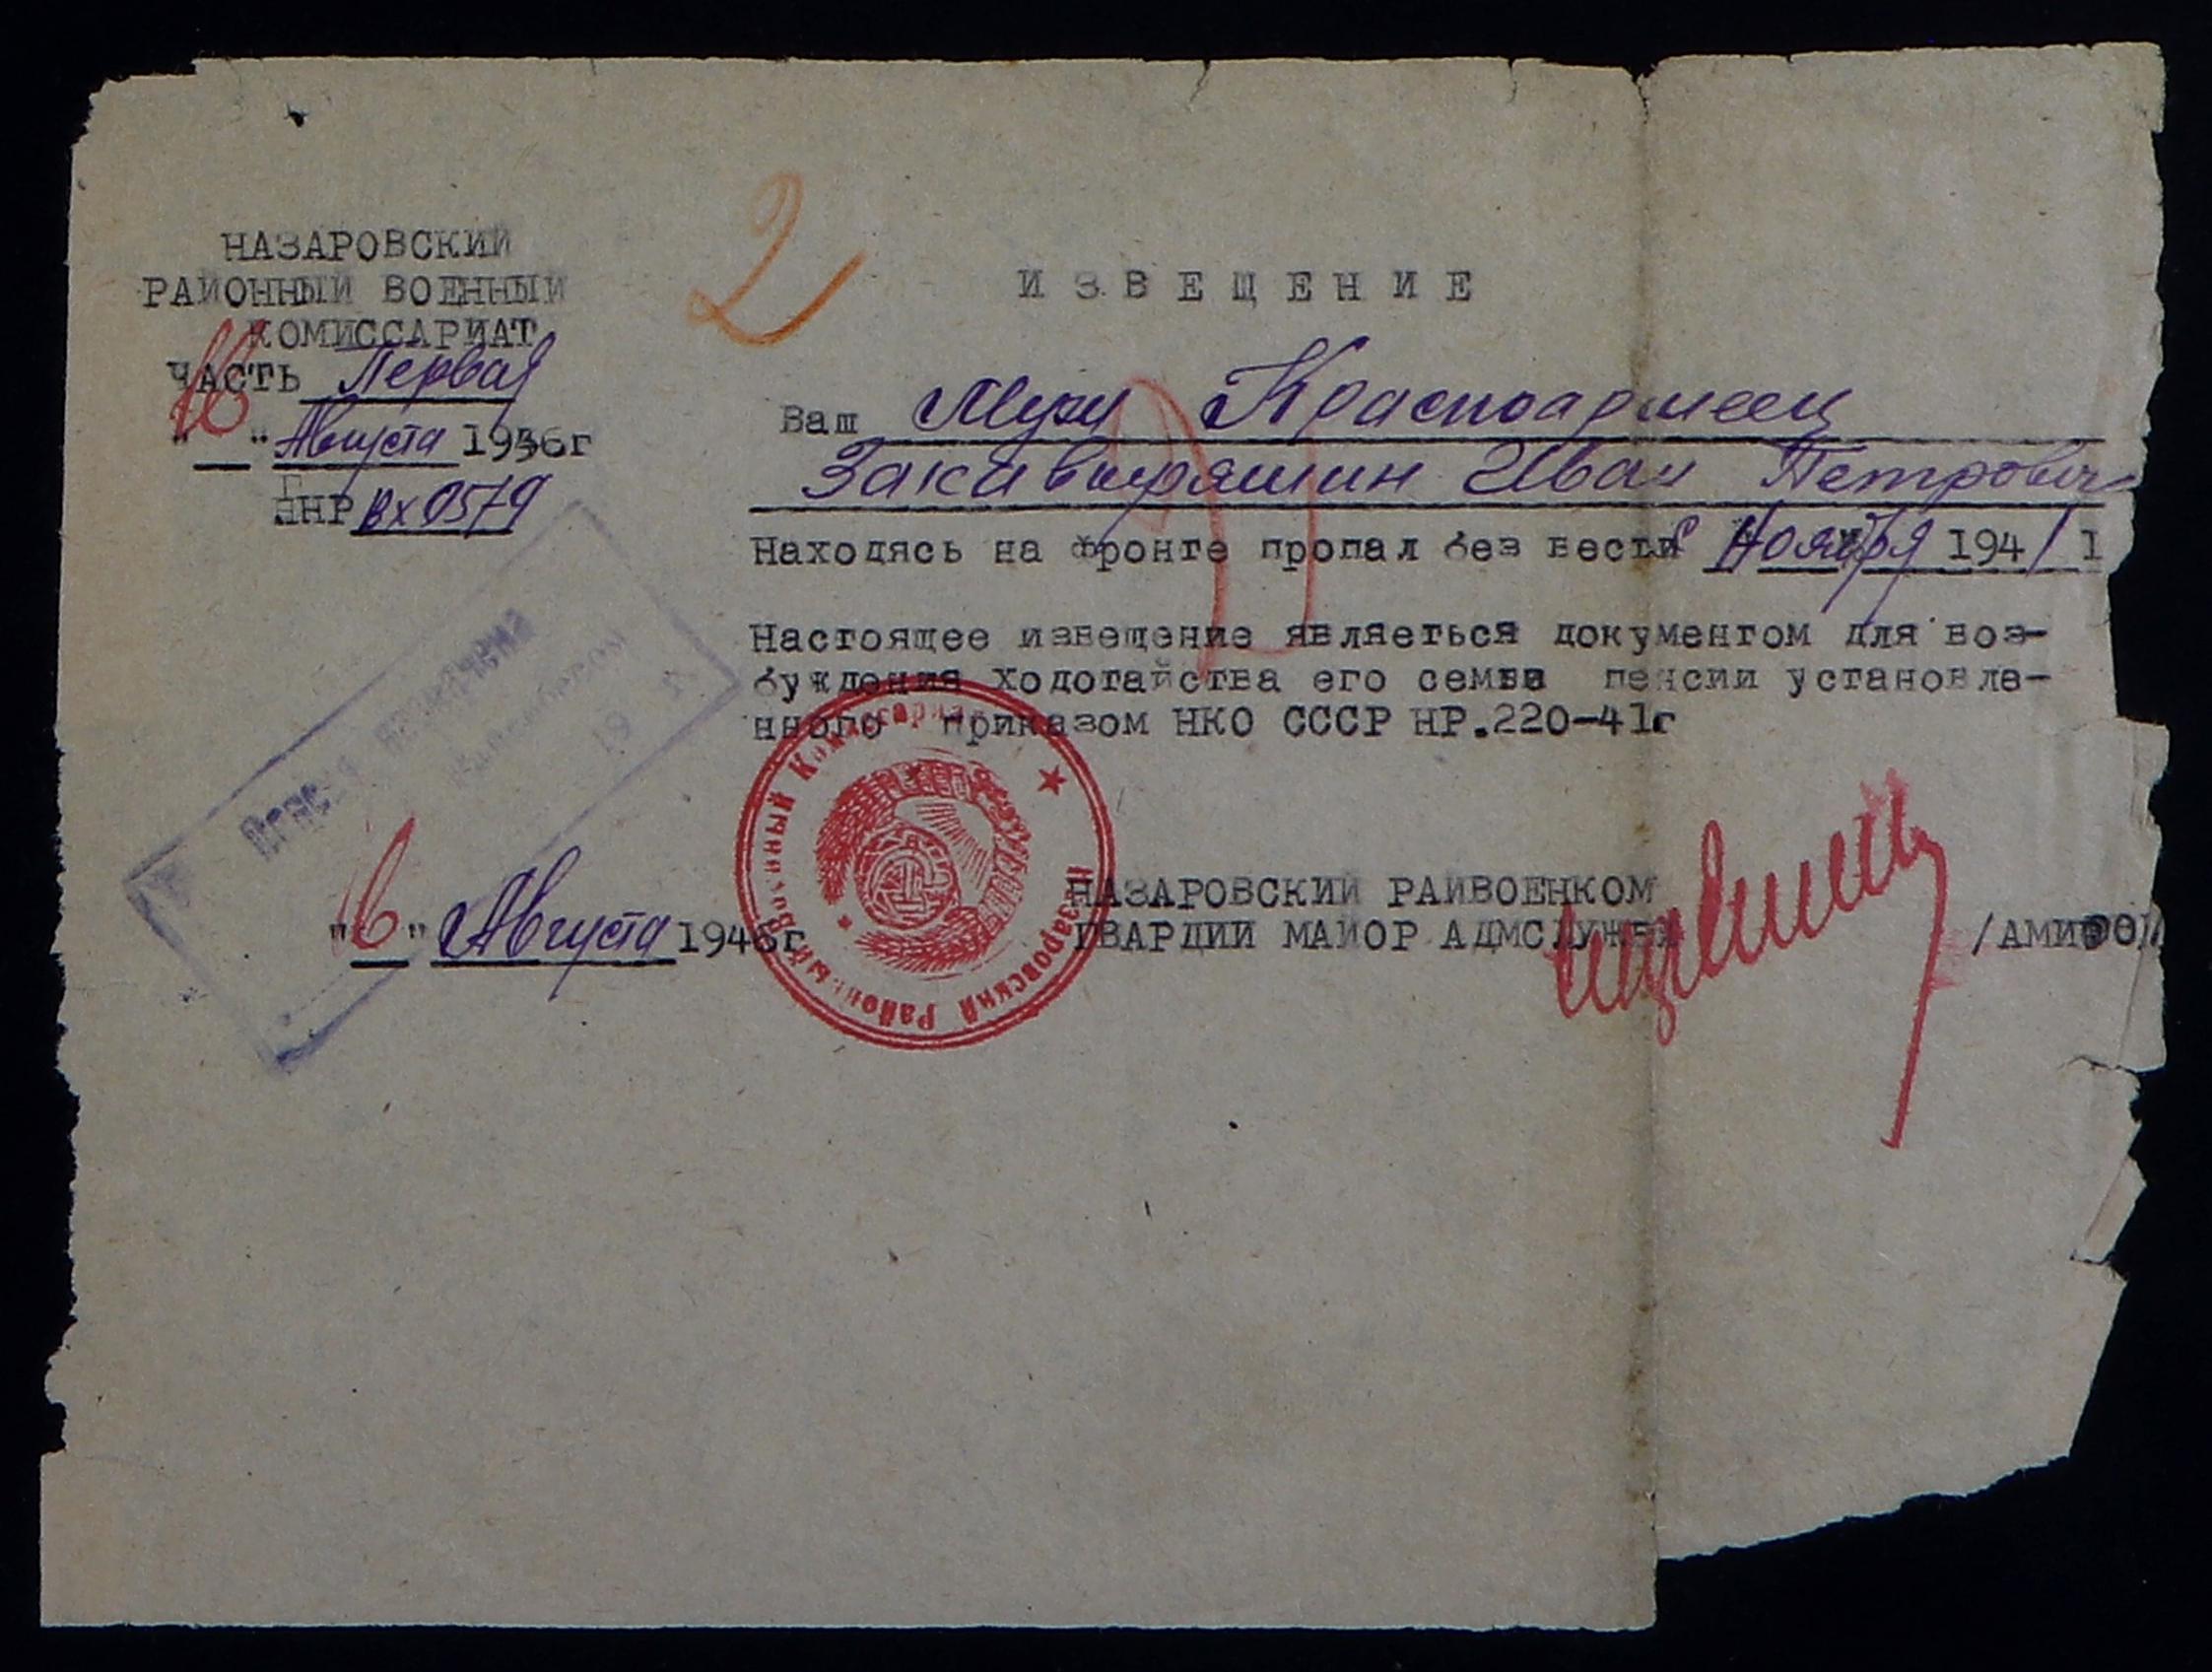 НАЗАРОВСКИЙ
РАЙОННЫЙ ВОЕННЫЙ
КОМИССАРИАТ
ЧАСТЬ Первая
" " Августа 1946г
ННР Вх 0579
2
ИЗВЕЩЕНИЕ
Ваш Муж Красноармеец
Иван Петрович
Находясь на фронте пропал без вести Ноября 194/1
Настоящее извещение являеться документом для воз-
буждения ходотайства его семье пенсии установле-
нного приказом НКО СССР НР.220-41г
"6" Августа 1946г
НАЗАРОВСКИЙ РАЙВОЕНКОМ
ГВАРДИИ МАЙОР АДМСЛУЖБЫ
Назаровский Районный Военный Комиссариат